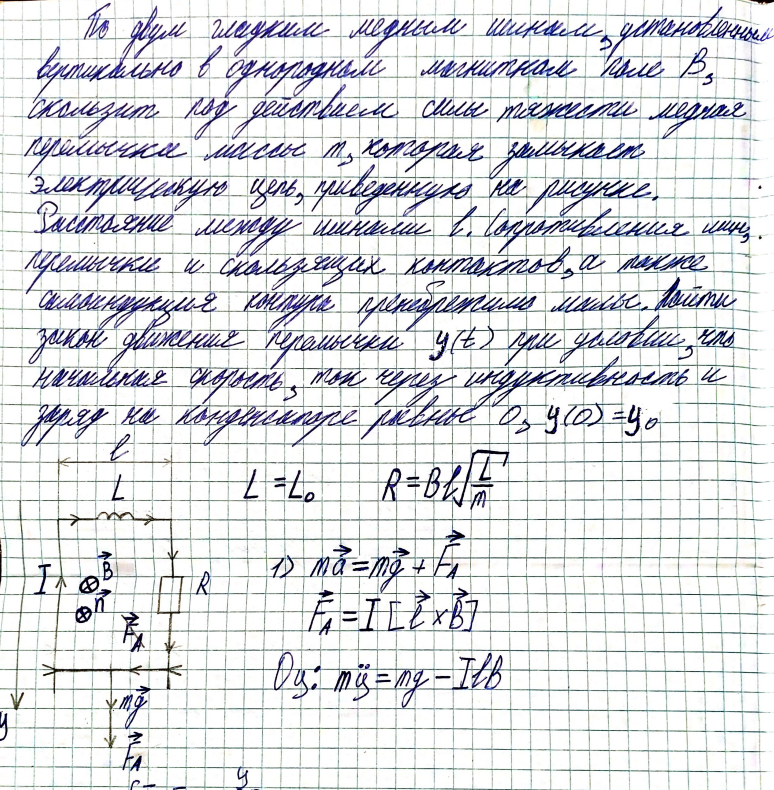 По двум гладким медным шинам, установленным
вертикально в однородном магнитном поле B,
скользит под действием силы тяжести медная
перемычка массы m, которая замыкает
электрическую цепь, приведенную на рисунке.
Расстояние между шинами l. Сопротивления шин,
перемычки и скользящих контактов, а также
самоиндукция контура пренебрежимо малы. Найти
закон движения перемычки y(t) при условии, что
начальная скорость, ток через индуктивность и
заряд на конденсаторе равные 0, y(0) = y₀
l
L
L = L₀ R = Bl√(L/m)
I
B⃗
n⃗
R
1) ma⃗ = mg⃗ + F⃗_A
F⃗_A = I [l⃗ × B⃗]
F⃗_A
Oy: mÿ = mg − IlB
mg⃗
y
F⃗_A